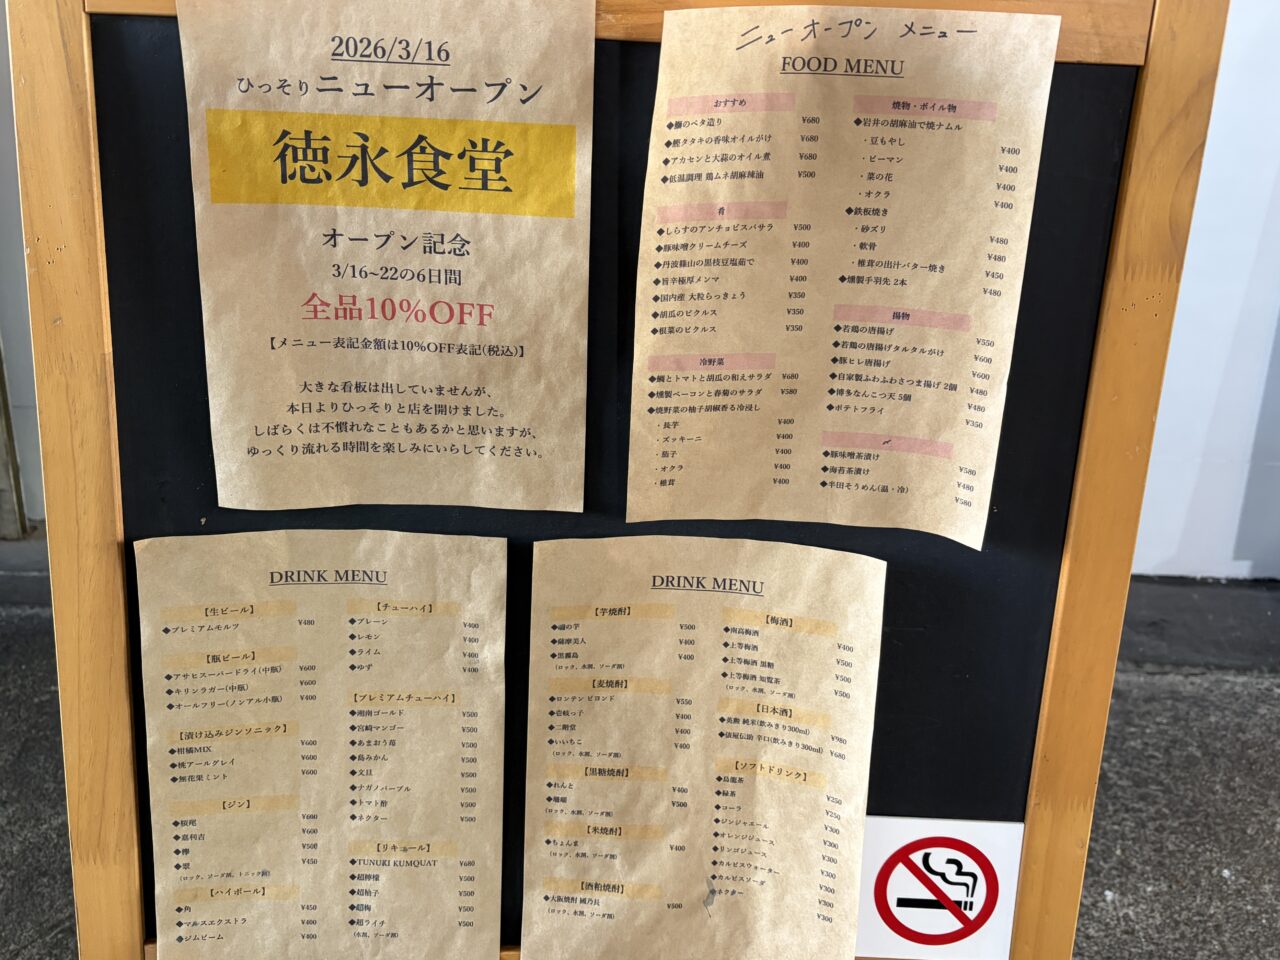 2026/3/16
ひっそりニューオープン
徳永食堂
オープン記念
3/16~22の6日間
全品10%OFF
【メニュー表記金額は10%OFF表記(税込)】
大きな看板は出していませんが、
本日よりひっそりと店を開けました。
しばらくは不慣れなこともあるかと思いますが、
ゆっくり流れる時間を楽しみにいらしてください。
ニューオープン メニュー
FOOD MENU
おすすめ
◆鰤のベタ造り ¥680
◆鰹タタキの香味オイルがけ ¥680
◆アカセンと大蒜のオイル煮 ¥680
◆低温調理 鶏ムネ胡麻辣油 ¥500
肴
◆しらすのアンチョビスパサラ ¥500
◆豚味噌クリームチーズ ¥400
◆丹波篠山の黒枝豆塩茹で ¥400
◆旨辛極厚メンマ ¥400
◆国内産 大粒らっきょう ¥350
◆胡瓜のピクルス ¥350
◆根菜のピクルス ¥350
冷野菜
◆鯛とトマトと胡瓜の和えサラダ ¥680
◆燻製ベーコンと春菊のサラダ ¥580
◆焼野菜の柚子胡椒香る冷浸し
・長芋 ¥400
・ズッキーニ ¥400
・茄子 ¥400
・オクラ ¥400
・椎茸 ¥400
焼物・ボイル物
◆岩井の胡麻油で焼ナムル
・豆もやし ¥400
・ピーマン ¥400
・菜の花 ¥400
・オクラ ¥400
◆鉄板焼き
・砂ズリ ¥480
・軟骨 ¥480
・椎茸の出汁バター焼き ¥450
◆燻製手羽先 2本 ¥480
揚物
◆若鶏の唐揚げ ¥550
◆若鶏の唐揚げタルタルがけ ¥600
◆豚ヒレ唐揚げ ¥600
◆自家製ふわふわさつま揚げ 2個 ¥480
◆博多なんこつ天 5個 ¥480
◆ポテトフライ ¥350
〆
◆豚味噌茶漬け ¥580
◆海苔茶漬け ¥480
◆半田そうめん(温・冷) ¥580
DRINK MENU
【生ビール】
◆プレミアムモルツ ¥480
【瓶ビール】
◆アサヒスーパードライ(中瓶) ¥600
◆キリンラガー(中瓶) ¥600
◆オールフリー(ノンアル小瓶) ¥400
【漬け込みジンソニック】
◆柑橘MIX ¥600
◆桃アールグレイ ¥600
◆無花果ミント ¥600
【ジン】
◆桜尾 ¥600
◆嘉利吉 ¥600
◆欅 ¥500
◆翠 ¥450
(ロック、ソーダ割、トニック割)
【ハイボール】
◆角 ¥450
◆マルスエクストラ ¥400
◆ジムビーム ¥400
【チューハイ】
◆プレーン ¥400
◆レモン ¥400
◆ライム ¥400
◆ゆず ¥400
【プレミアムチューハイ】
◆湘南ゴールド ¥500
◆宮崎マンゴー ¥500
◆あまおう苺 ¥500
◆島みかん ¥500
◆文旦 ¥500
◆ナガノパープル ¥500
◆トマト酢 ¥500
◆ネクター ¥500
【リキュール】
◆TUNUKI KUMQUAT ¥680
◆超檸檬 ¥500
◆超柚子 ¥500
◆超梅 ¥500
◆超ライチ ¥500
(水割、ソーダ割)
DRINK MENU
【芋焼酎】
の芋 ¥500
◆薩摩美人 ¥400
◆黒霧島 ¥400
(ロック、水割、ソーダ割)
【麦焼酎】
◆ロンテン ビヨンド ¥550
◆壱岐っ子 ¥400
◆二階堂 ¥400
◆いいちこ ¥400
(ロック、水割、ソーダ割)
【黒糖焼酎】
◆れんと ¥400
◆ ¥500
(ロック、水割、ソーダ割)
【米焼酎】
◆ちょんま ¥400
(ロック、水割、ソーダ割)
【酒粕焼酎】
◆大阪焼酎 國乃長 ¥500
(ロック、水割、ソーダ割)
【梅酒】
◆南高梅酒 ¥400
◆上等梅酒 ¥500
◆上等梅酒 黒糖 ¥500
◆上等梅酒 知覧茶 ¥500
(ロック、水割、ソーダ割)
【日本酒】
◆英勲 純米(飲みきり300ml) ¥980
◆俵屋伝助 辛口(飲みきり300ml) ¥680
【ソフトドリンク】
◆烏龍茶 ¥250
◆緑茶 ¥250
◆コーラ ¥300
◆ジンジャエール ¥300
◆オレンジジュース ¥300
◆リンゴジュース ¥300
◆カルピスウォーター ¥300
◆カルピスソーダ ¥300
◆ネクター ¥300